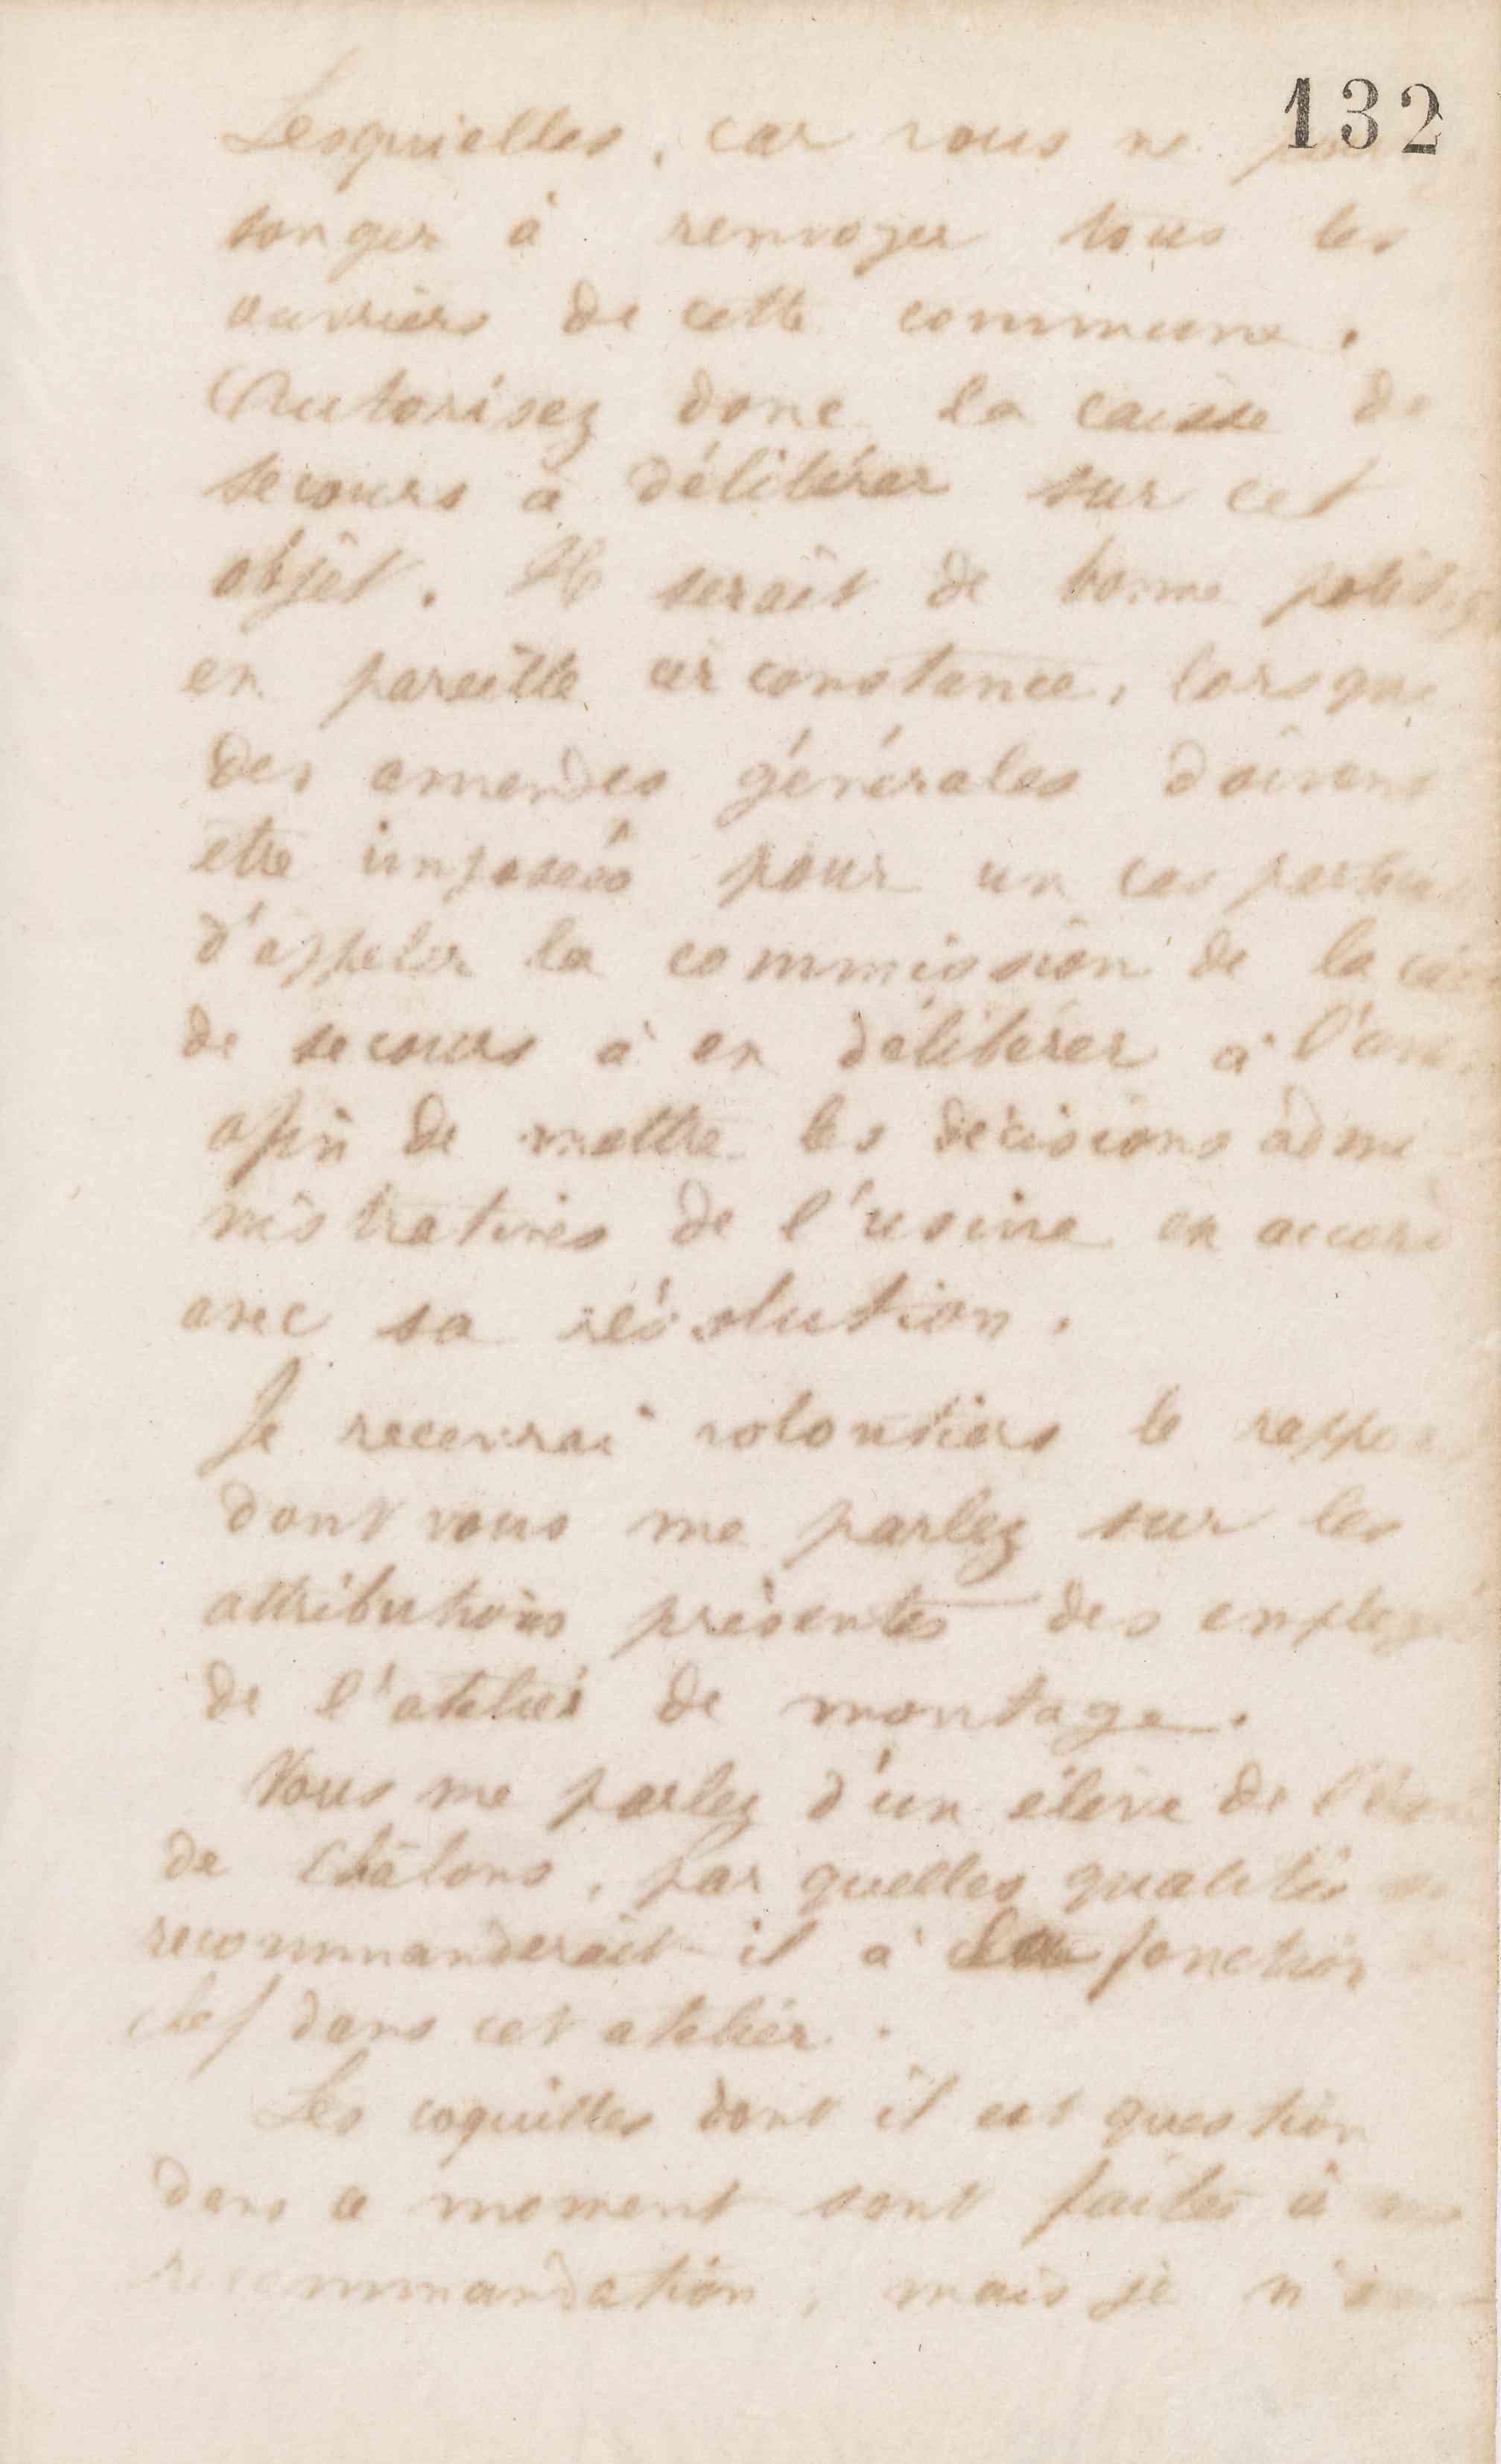 132
Lesquielles, car vous ne
songer à renvoyer tous les
ouvriers de cette commune.
Autorisez donc la caisse de
secours à délibérer sur cet
objet. Il serait de bonne
en pareille circonstance, lorsque
des amendes générales doivent
etre imposées pour un cas
d'appeler la commission de la
de secours à en délibérer à
afin de mettre les décisions admi
nistratives de l'usine en accord
avec sa résolution.
Je recevrai volontiers le
dont vous me parlez sur les
attributions présentes des
de l'atelier de montage.
Vous me parlez d'un élève de
de Châlons, par quelles qualités
recommanderait-il à la fonction
chef dans cet atelier.
Les coquilles dont il est question
dans ce moment sont faites à
recommandation, mais je